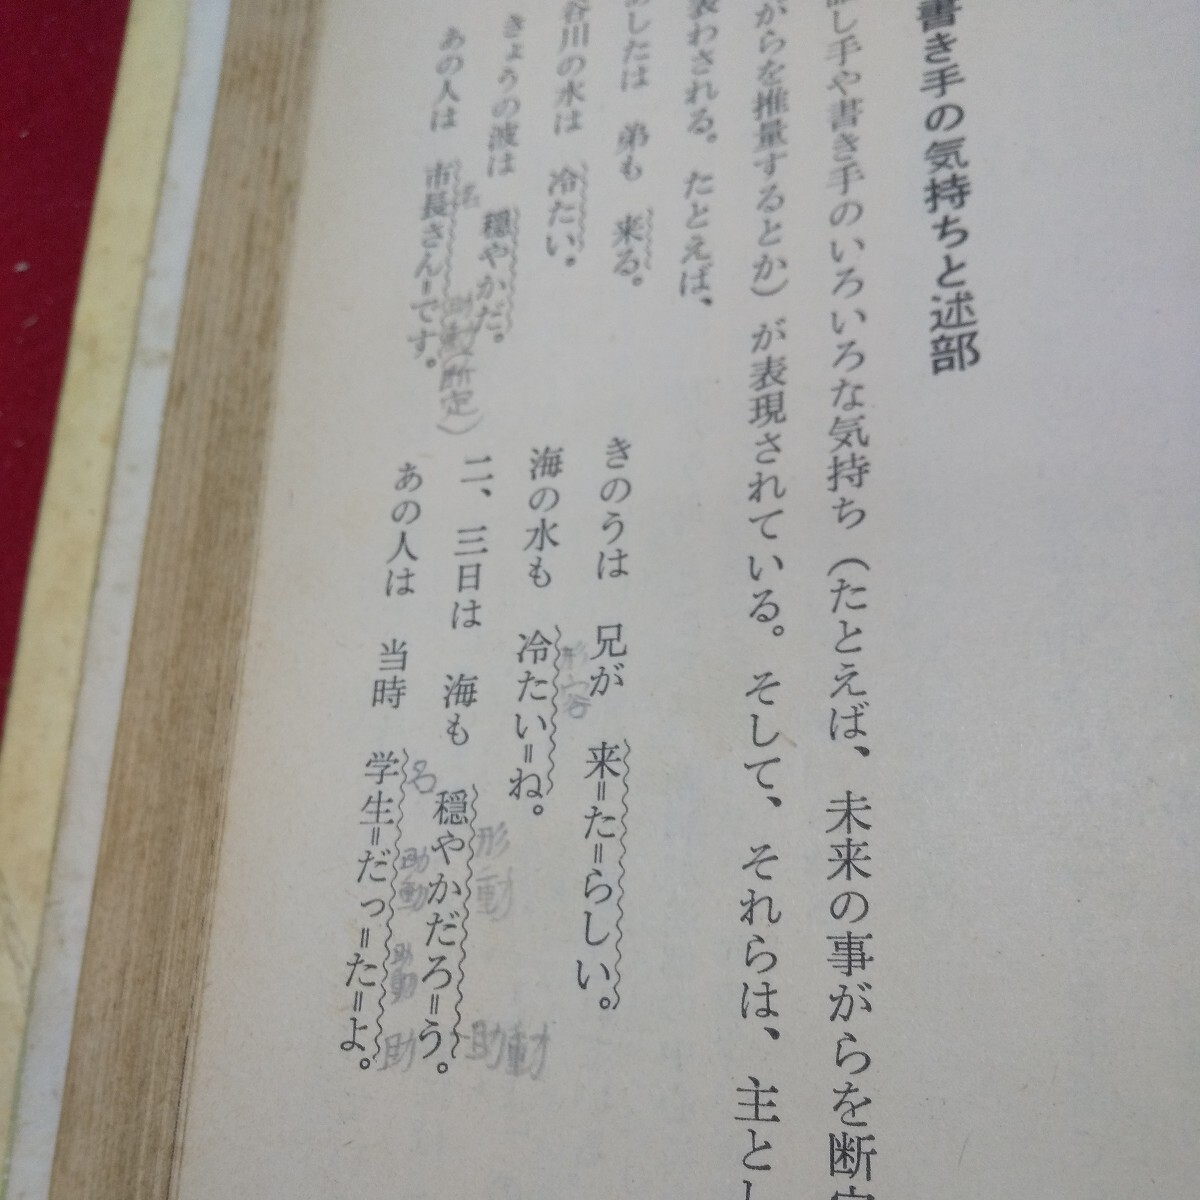 書き手の気持ちと述部
し手や書き手のいろいろな気持ち（たとえば、未来の事がらを断定
がらを推量するとか）が表現されている。そして、それらは、主とし
表わされる。たとえば、
あしたは 弟も 来る。
きのうは 兄が 来＝た＝らしい。
谷川の水は 冷たい。
海の水も 冷たい＝ね。
形容
きょうの波は 穏やかだ。
二、三日は 海も 穏やかだろ＝う。
形動
助動
あの人は 市長さん＝です。
名
助動（断定）
あの人は 当時 学生＝だっ＝た＝よ。
名
助動
助動
助